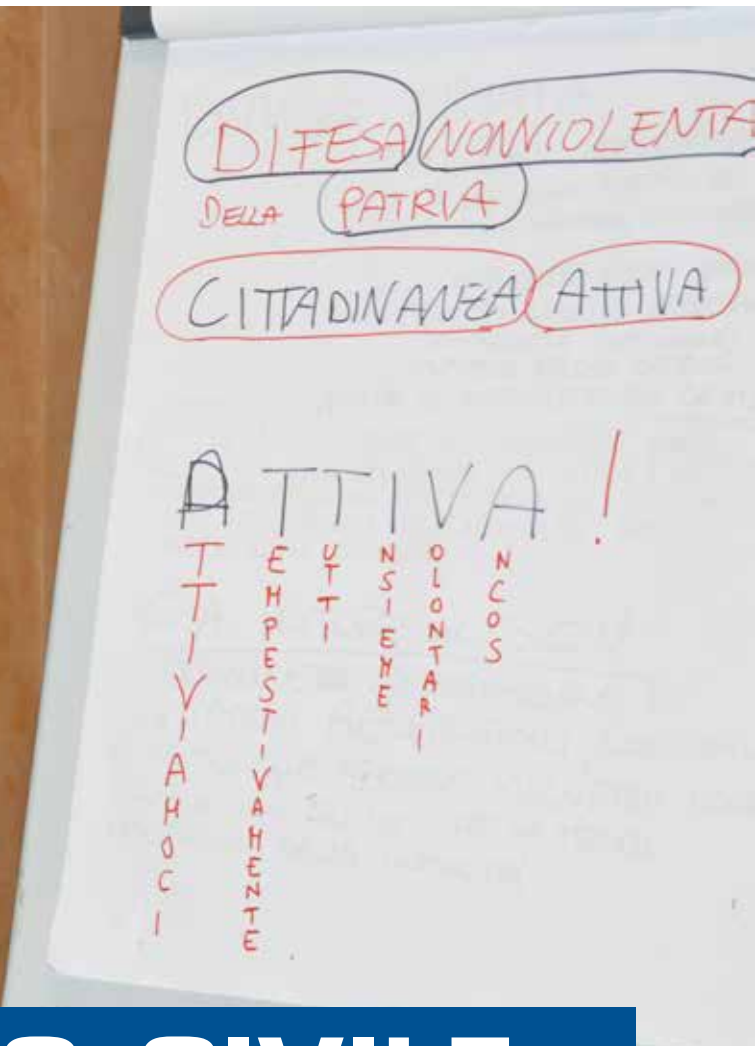 DIFESA NONVIOLENTA
DELLA PATRIA
CITTADINANZA ATTIVA
ATTIVA!
ATTIVIAMOCI
TEMPESTIVAMENTE
TUTTI
INSIEME
VOLONTARI
ANCOS
CIVILE